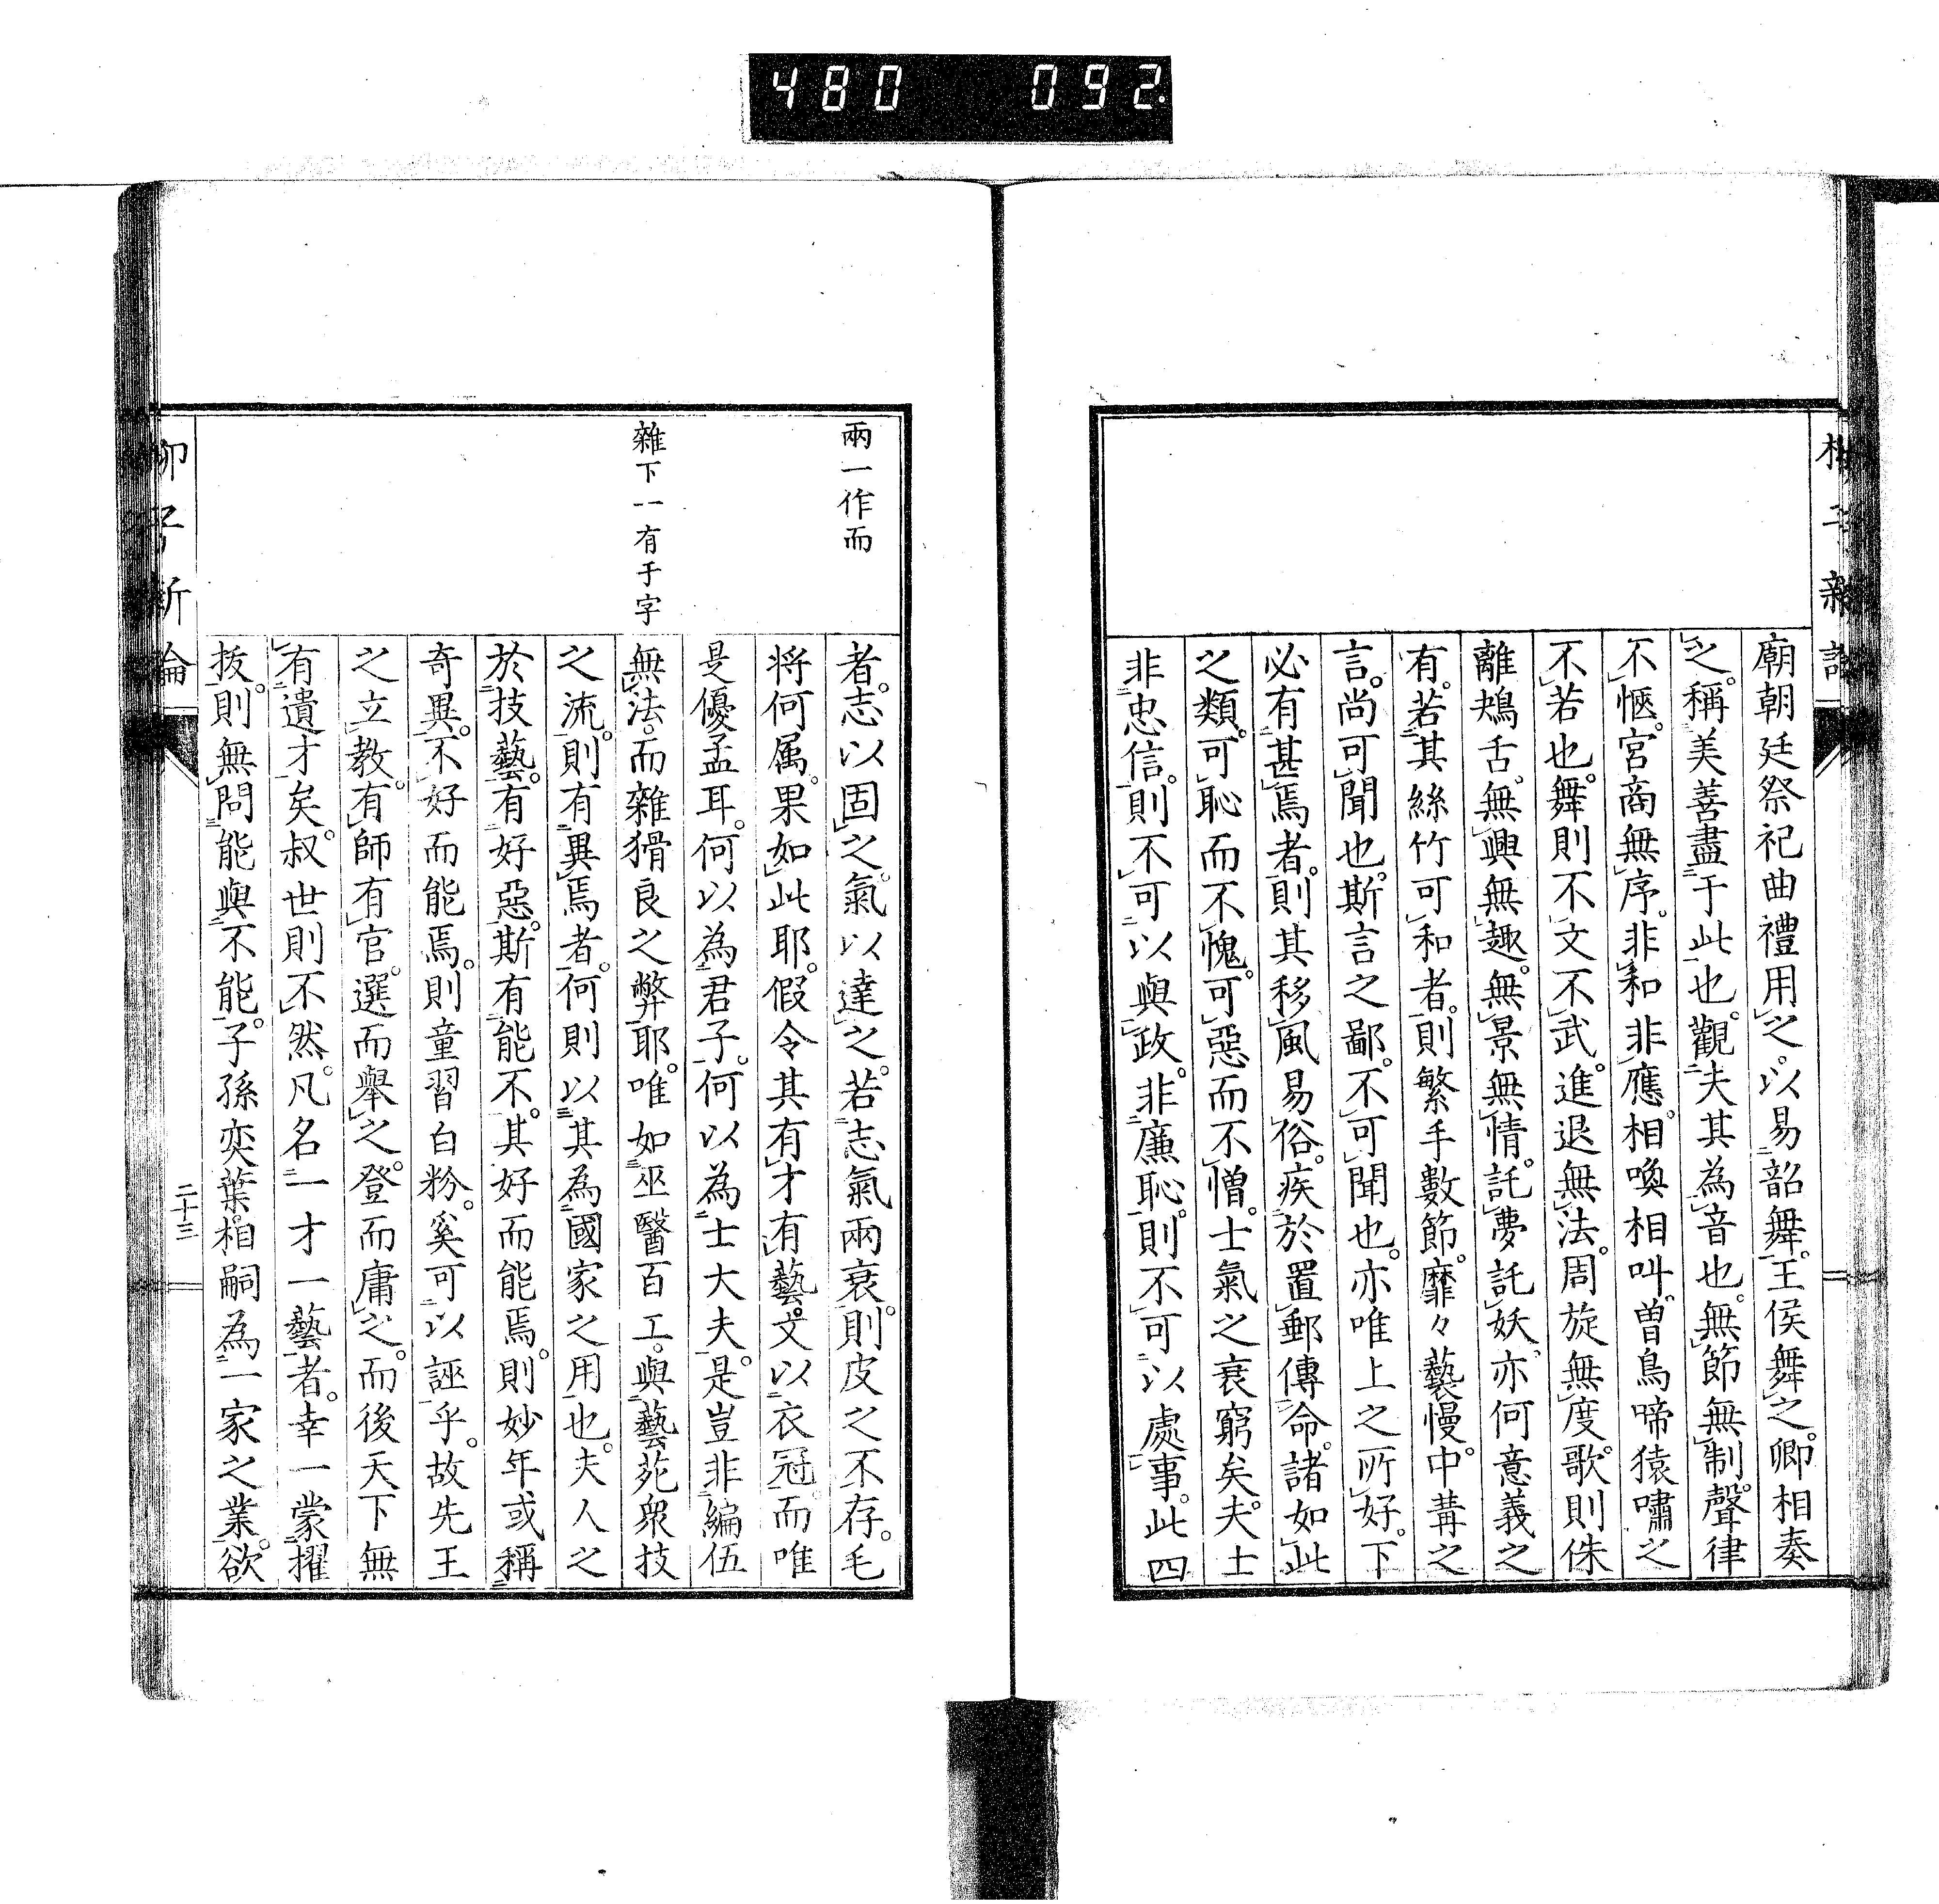 480 092
柳子新論
廟朝廷祭祀曲禮用之。以易韶舞。王侯舞之。卿相奏
之。稱美善盡于此也。觀夫其為音也。無節無制。聲律
不愜。宮商無序。非和非應。相喚相叫。曽鳥啼猿嘯之
不若也。舞則不文不武。進退無法。周旋無度。歌則侏
離鴂舌。無興無趣。無景無情。託夢託妖。亦何意義之
有。若其絲竹可和者。則繁手數節。靡々藝慢。中冓之
言。尚可聞也。斯言之鄙。不可聞也。亦唯上之所好。下
必有甚焉者。則其移風易俗。疾於置郵傳命。諸如此
之類。可恥而不愧。可惡而不憎。士氣之衰窮矣。夫士
非忠信。則不可以與政。非廉恥。則不可以處事。此四
兩一作而
雜下一有于字
者。志以固之。氣以達之。若志氣兩衰。則皮之不存。毛
将何属。果如此耶。假令其有才有藝。文以衣冠。而唯
是優孟耳。何以為君子。何以為士大夫。是豈非編伍
無法。而雜猾良之弊耶。唯如巫醫百工。與藝苑衆技
之流。則有異焉者。何則以其為國家之用也。夫人之
於技藝。有好惡。斯有能不。其好而能焉。則妙年或稱
奇異。不好而能焉。則童習白粉。奚可以誣乎。故先王
之立教。有師有官。選而舉之。登而庸之。而後天下無
有遺才矣。叔世則不然。凡名一才一藝者。幸一蒙擢
拔。則無問能與不能。子孫奕葉。相嗣為一家之業。欲
柳子新論
二十三